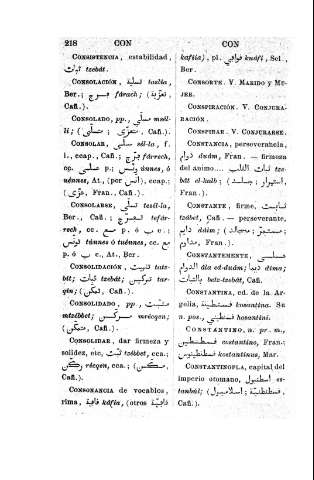 218 CON CON
CONSISTENCIA, estabilidad,
ثبات tzebát.
CONSOLACIÓN, تسلية tezlia,
Ber.; فرج fárach; (تعزية,
Cañ.).
CONSOLADO, pp., مسلي
li; (متعزى, Cañ.).
CONSOLAR, سلى sél-la, f.
i., ecap., Cañ.; فرّج fárrech,
cc. في p.; ونّس únnes, ó
uénnes, At., (por آنس), ecap.;
(عزى, Fran., Cañ.).
CONSOLARSE, تسلى tezél-la,
Ber., Cañ.; تفرّج tefár-
rech, cc. مع p. ó ب c.;
تونّس túnnes ó tuénnes, cc. مع
p. ó ب c., At., Ber.
CONSOLIDACIÓN, تثبيت tatz-
bit; ثبات tzébát; تركين tar-
qín; (تمكين, Cañ.).
CONSOLIDADO, pp., مثبّت
mtzébbet; مركّن mrécqen;
(متمكّن, Cañ.).
CONSOLIDAR, dar firmeza y
solidez, etc, ثبّت tzébbet, cca.;
ركّن récqen, cca.; (مكّن,
Cañ.).
CONSONANCIA de vocablos,
rima, قافية káfia, (otros قافيّة
kaffia), pl. قوافي kuáfi, Sel.,
Ber.
CONSORTE. V. MARIDO y MU-
JER.
CONSPIRACIÓN. V. CONJURA-
RACIÓN.
CONSPIRAR. V. CONJURARSE.
CONSTANCIA, perseverancia,
دوام duám, Fran. — firmeza
del animo.... ثبات القلب tze-
bát el-kalb; (جلد; استمرار,
Fran.).
CONSTANTE, firme, ثابت
tzábet, Cañ. — perseverante,
دايم dáim; (مستمرّ;
مداوم, Fran.).
CONSTANTEMENTE, على
الدوام ála ed-duám; ديما díma;
بالثبات betz-tzebát, Cañ.
CONSTANTINA, cd. de la Ar-
gelia, قسنطينة kosantína. SU
n. pos., قسنطيني kosantíni.
CONSTANTINO, n. pr. m.,
قسطنطين costantino, Fran.;
قسطنطينوس kostantinus, Mar.
CONSTANTINOPLA, capital del
imperio otomano, اسطنبول es-
tanbúl; (قسطنطينيّة; اسلامبول,
Cañ.).